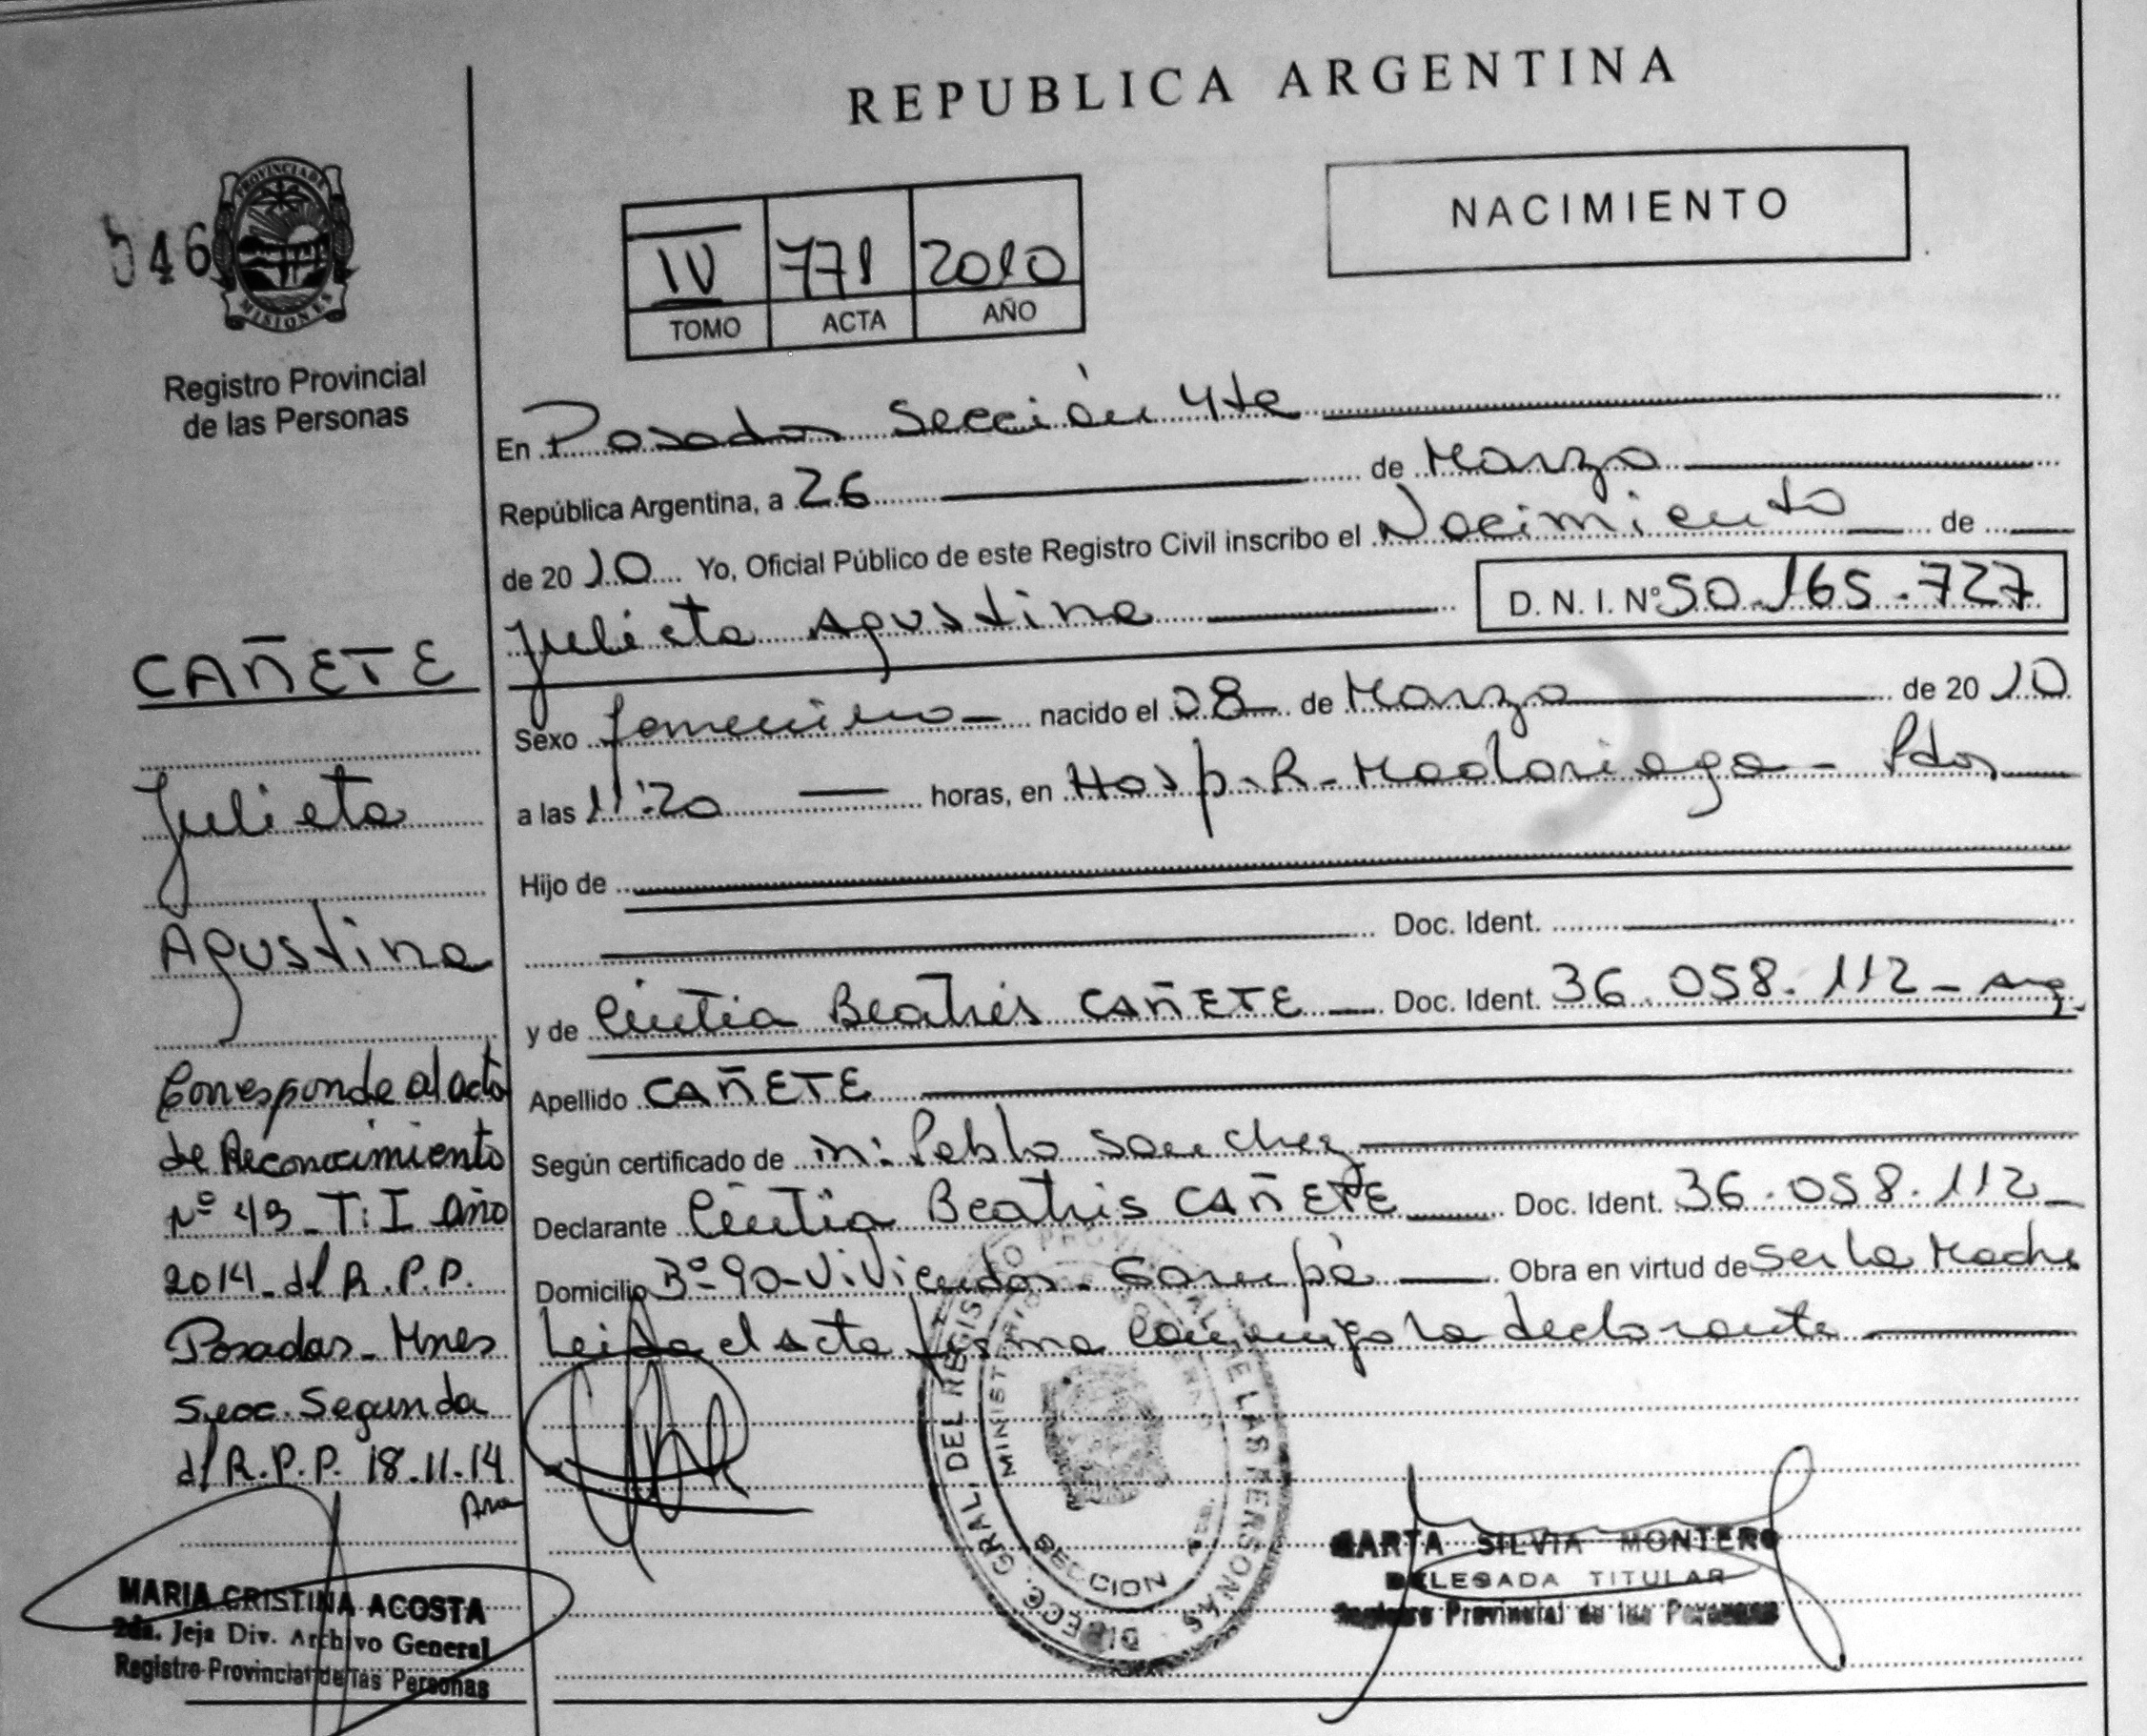 REPUBLICA ARGENTINA
NACIMIENTO
IV 771 2010
TOMO ACTA AÑO
546
PROVINCIA DE
MISIONES
Registro Provincial
de las Personas
En Posadas Sección 4ta
República Argentina, a 26 de Marzo
de 2010 Yo, Oficial Público de este Registro Civil inscribo el Nacimiento de
Julieta Agustina D. N. I. Nº 50.165.727
Sexo femenino nacido el 08 de Marzo de 2010
a las 11:20 horas, en Hosp. R. Madariaga - Pdas
Hijo de
Doc. Ident.
y de Cintia Beatris CAÑETE Doc. Ident. 36.058.112 - Arg.
Apellido CAÑETE
Según certificado de m: Pablo Sanchez
Declarante Cintia Beatris CAÑETE Doc. Ident. 36.058.112
Domicilio Bº 90 Viviendas - Garupá Obra en virtud de ser la Madre
Leida el acta firma conmigo la declarante
CAÑETE
Julieta
Agustina
Corresponde al acta
de Reconocimiento
Nº 49 - T: I año
2014 - dl R.P.P.
Posadas - Mnes
Secc. Segunda
dl R.P.P. 18.11.14
Ana
MARIA CRISTINA ACOSTA
2da. Jefa Div. Archivo General
Registro Provincial de las Personas
DIRECC. GRAL. DEL REGISTRO PROVINCIAL DE LAS PERSONAS
MINISTERIO DE GOBIERNO
SECCION
MARTA SILVIA MONTERO
DELEGADA TITULAR
Registro Provincial de las Personas